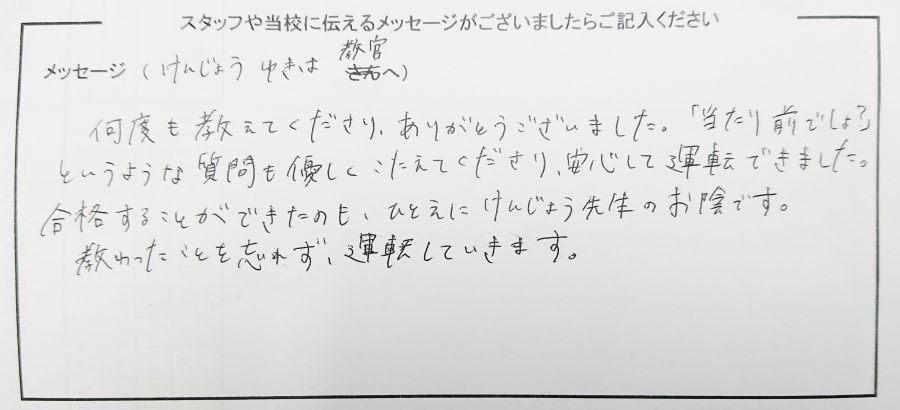 スタッフや当校に伝えるメッセージがございましたらご記入ください
メッセージ(けんじょう ゆきは 教官へ)
何度も教えてくださり、ありがとうございました。「当たり前でしょ?」
というような質問も優しくこたえてくださり、安心して運転できました。
合格することができたのも、ひとえにけんじょう先生のお陰です。
教わったことを忘れず、運転していきます。